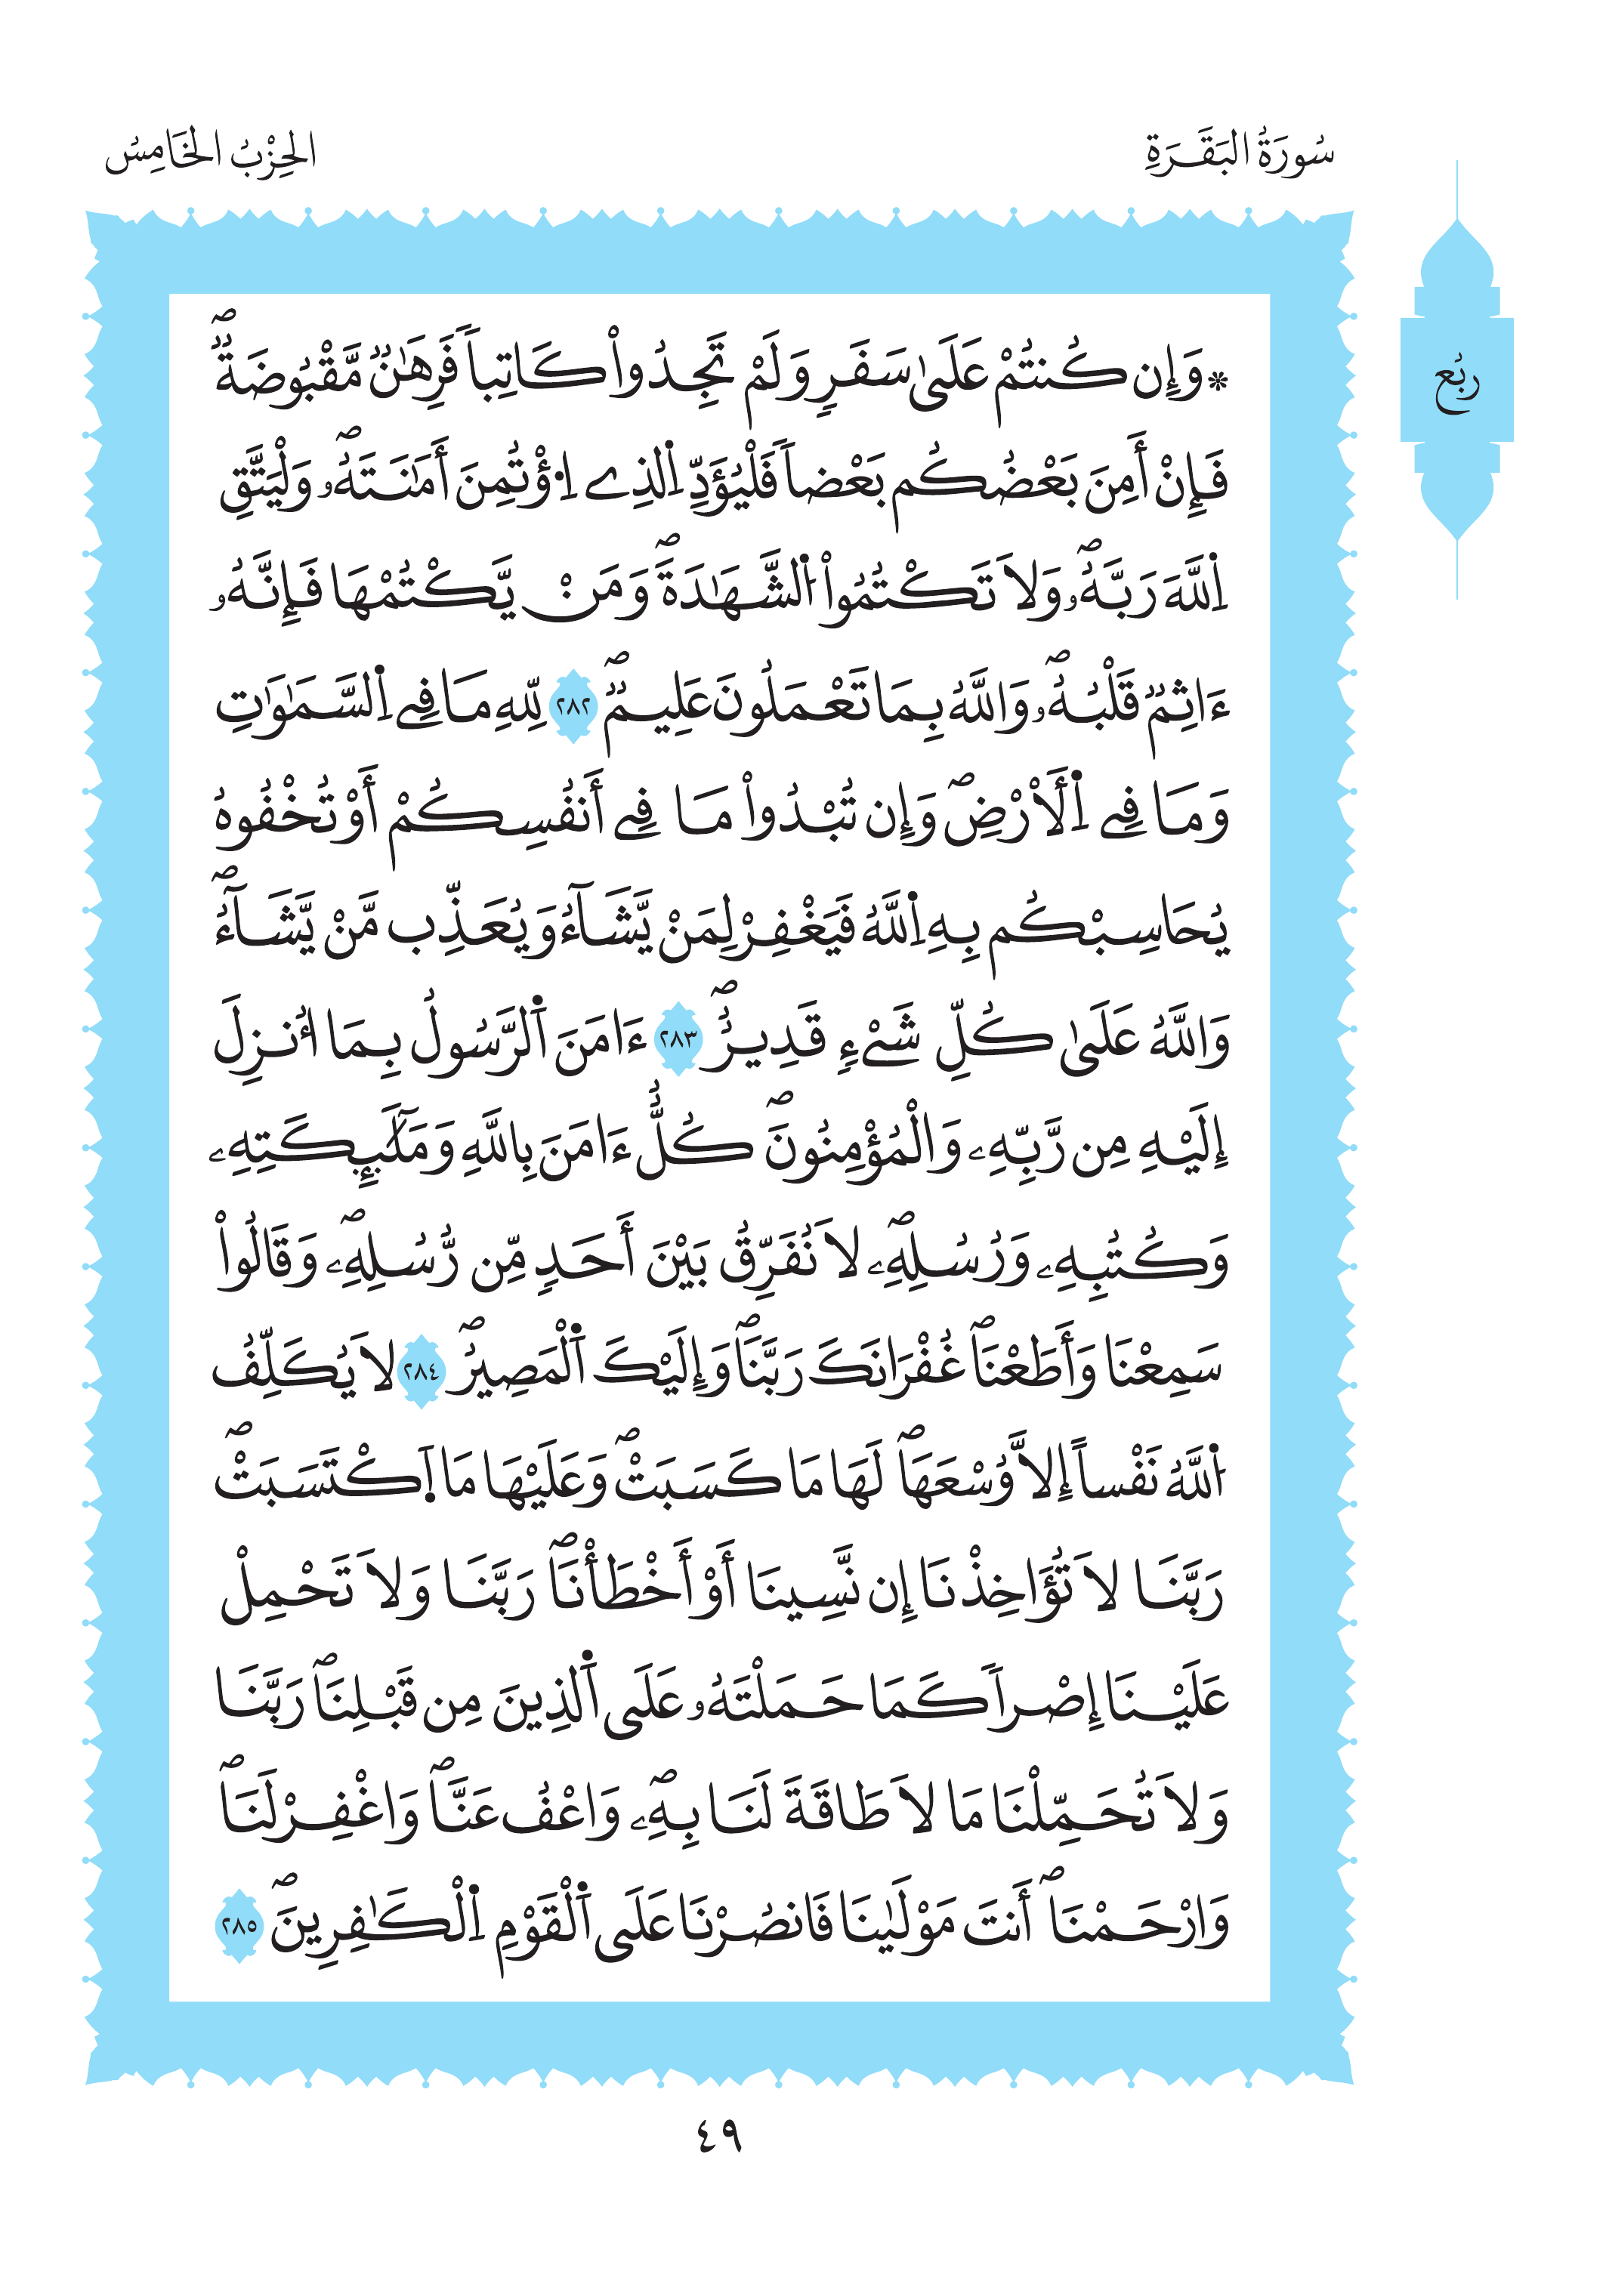 سُورَةُ البَقَرَةِ
الحِزْبُ الخَامِسُ
رُبُع
* وَإِن كُنتُمْ عَلَىٰ سَفَرٍ وَلَمْ تَجِدُواْ كَاتِباً فَرِهَٰنٌ مَّقْبُوضَةٌۖ
فَإِنْ أَمِنَ بَعْضُكُم بَعْضاً فَلْيُؤَدِّ اِ۬لذِے اِ۟ؤْتُمِنَ أَمَٰنَتَهُۥۖ وَلْيَتَّقِ
اِ۬للَّهَ رَبَّهُۥۖ وَلَا تَكْتُمُواْ اُ۬لشَّهَٰدَةَۖ وَمَنْ يَّكْتُمْهَا فَإِنَّهُۥ
ءَاثِمٌ قَلْبُهُۥۖ وَاللَّهُ بِمَا تَعْمَلُونَ عَلِيمٌۖ ٢٨٢ لِّلهِ مَا فِے اِ۬لسَّمَٰوَٰتِ
وَمَا فِے اِ۬لَارْضِۖ وَإِن تُبْدُواْ مَا فِے أَنفُسِكُمْ أَوْ تُخْفُوهُ
يُحَاسِبْكُم بِهِ اِ۬للَّهُ فَيَغْفِرْ لِمَنْ يَّشَآءُ وَيُعَذِّب مَّنْ يَّشَآءُۖ
وَاللَّهُ عَلَىٰ كُلِّ شَےْءٍ قَدِيرٌۖ ٢٨٣ ءَامَنَ اَ۬لرَّسُولُ بِمَا أُنزِلَ
إِلَيْهِ مِن رَّبِّهِۦ وَالْمُؤْمِنُونَۖ كُلٌّ ءَامَنَ بِاللَّهِ وَمَلَٰٓئِكَتِهِۦ
وَكُتُبِهِۦ وَرُسُلِهِۦۖ لَا نُفَرِّقُ بَيْنَ أَحَدٍ مِّن رُّسُلِهِۦۖ وَقَالُواْ
سَمِعْنَا وَأَطَعْنَاۖ غُفْرَانَكَ رَبَّنَاۖ وَإِلَيْكَ اَ۬لْمَصِيرُۖ ٢٨٤ لَا يُكَلِّفُ
اُ۬للَّهُ نَفْساً إِلَّا وُسْعَهَاۖ لَهَا مَا كَسَبَتْۖ وَعَلَيْهَا مَا اَ۪كْتَسَبَتْۖ
رَبَّنَا لَا تُؤَاخِذْنَا إِن نَّسِينَا أَوْ أَخْطَأْنَاۖ رَبَّنَا وَلَا تَحْمِلْ
عَلَيْنَا إِصْراً كَمَا حَمَلْتَهُۥ عَلَى اَ۬لذِينَ مِن قَبْلِنَاۖ رَبَّنَا
وَلَا تُحَمِّلْنَا مَا لَا طَاقَةَ لَنَا بِهِۦۖ وَاعْفُ عَنَّاۖ وَاغْفِرْ لَنَاۖ
وَارْحَمْنَاۖ أَنتَ مَوْلَىٰنَا فَانصُرْنَا عَلَى اَ۬لْقَوْمِ اِ۬لْكَٰفِرِينَۖ ٢٨٥
٤٩